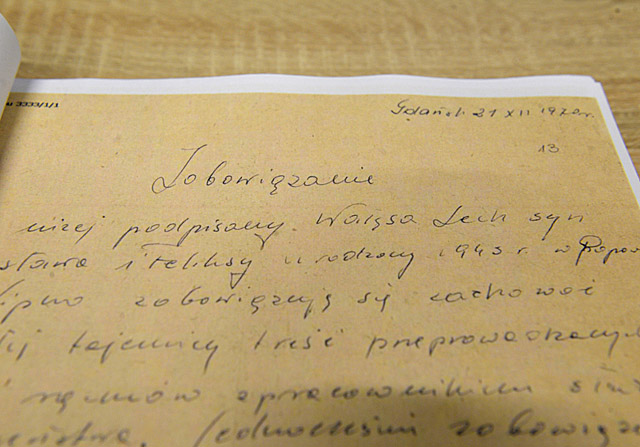 3333/1/1
Gdańsk 21 XII 1970r.
13
Zobowiązanie
niżej podpisany Wałęsa Lech syn
sława i Feliksy urodzony 1943 r. w Popow
ipno zobowiązuję się zachować
tajemnicy treść przeprowadzanych
z pracownikiem
Jednocześnie zobowiąz